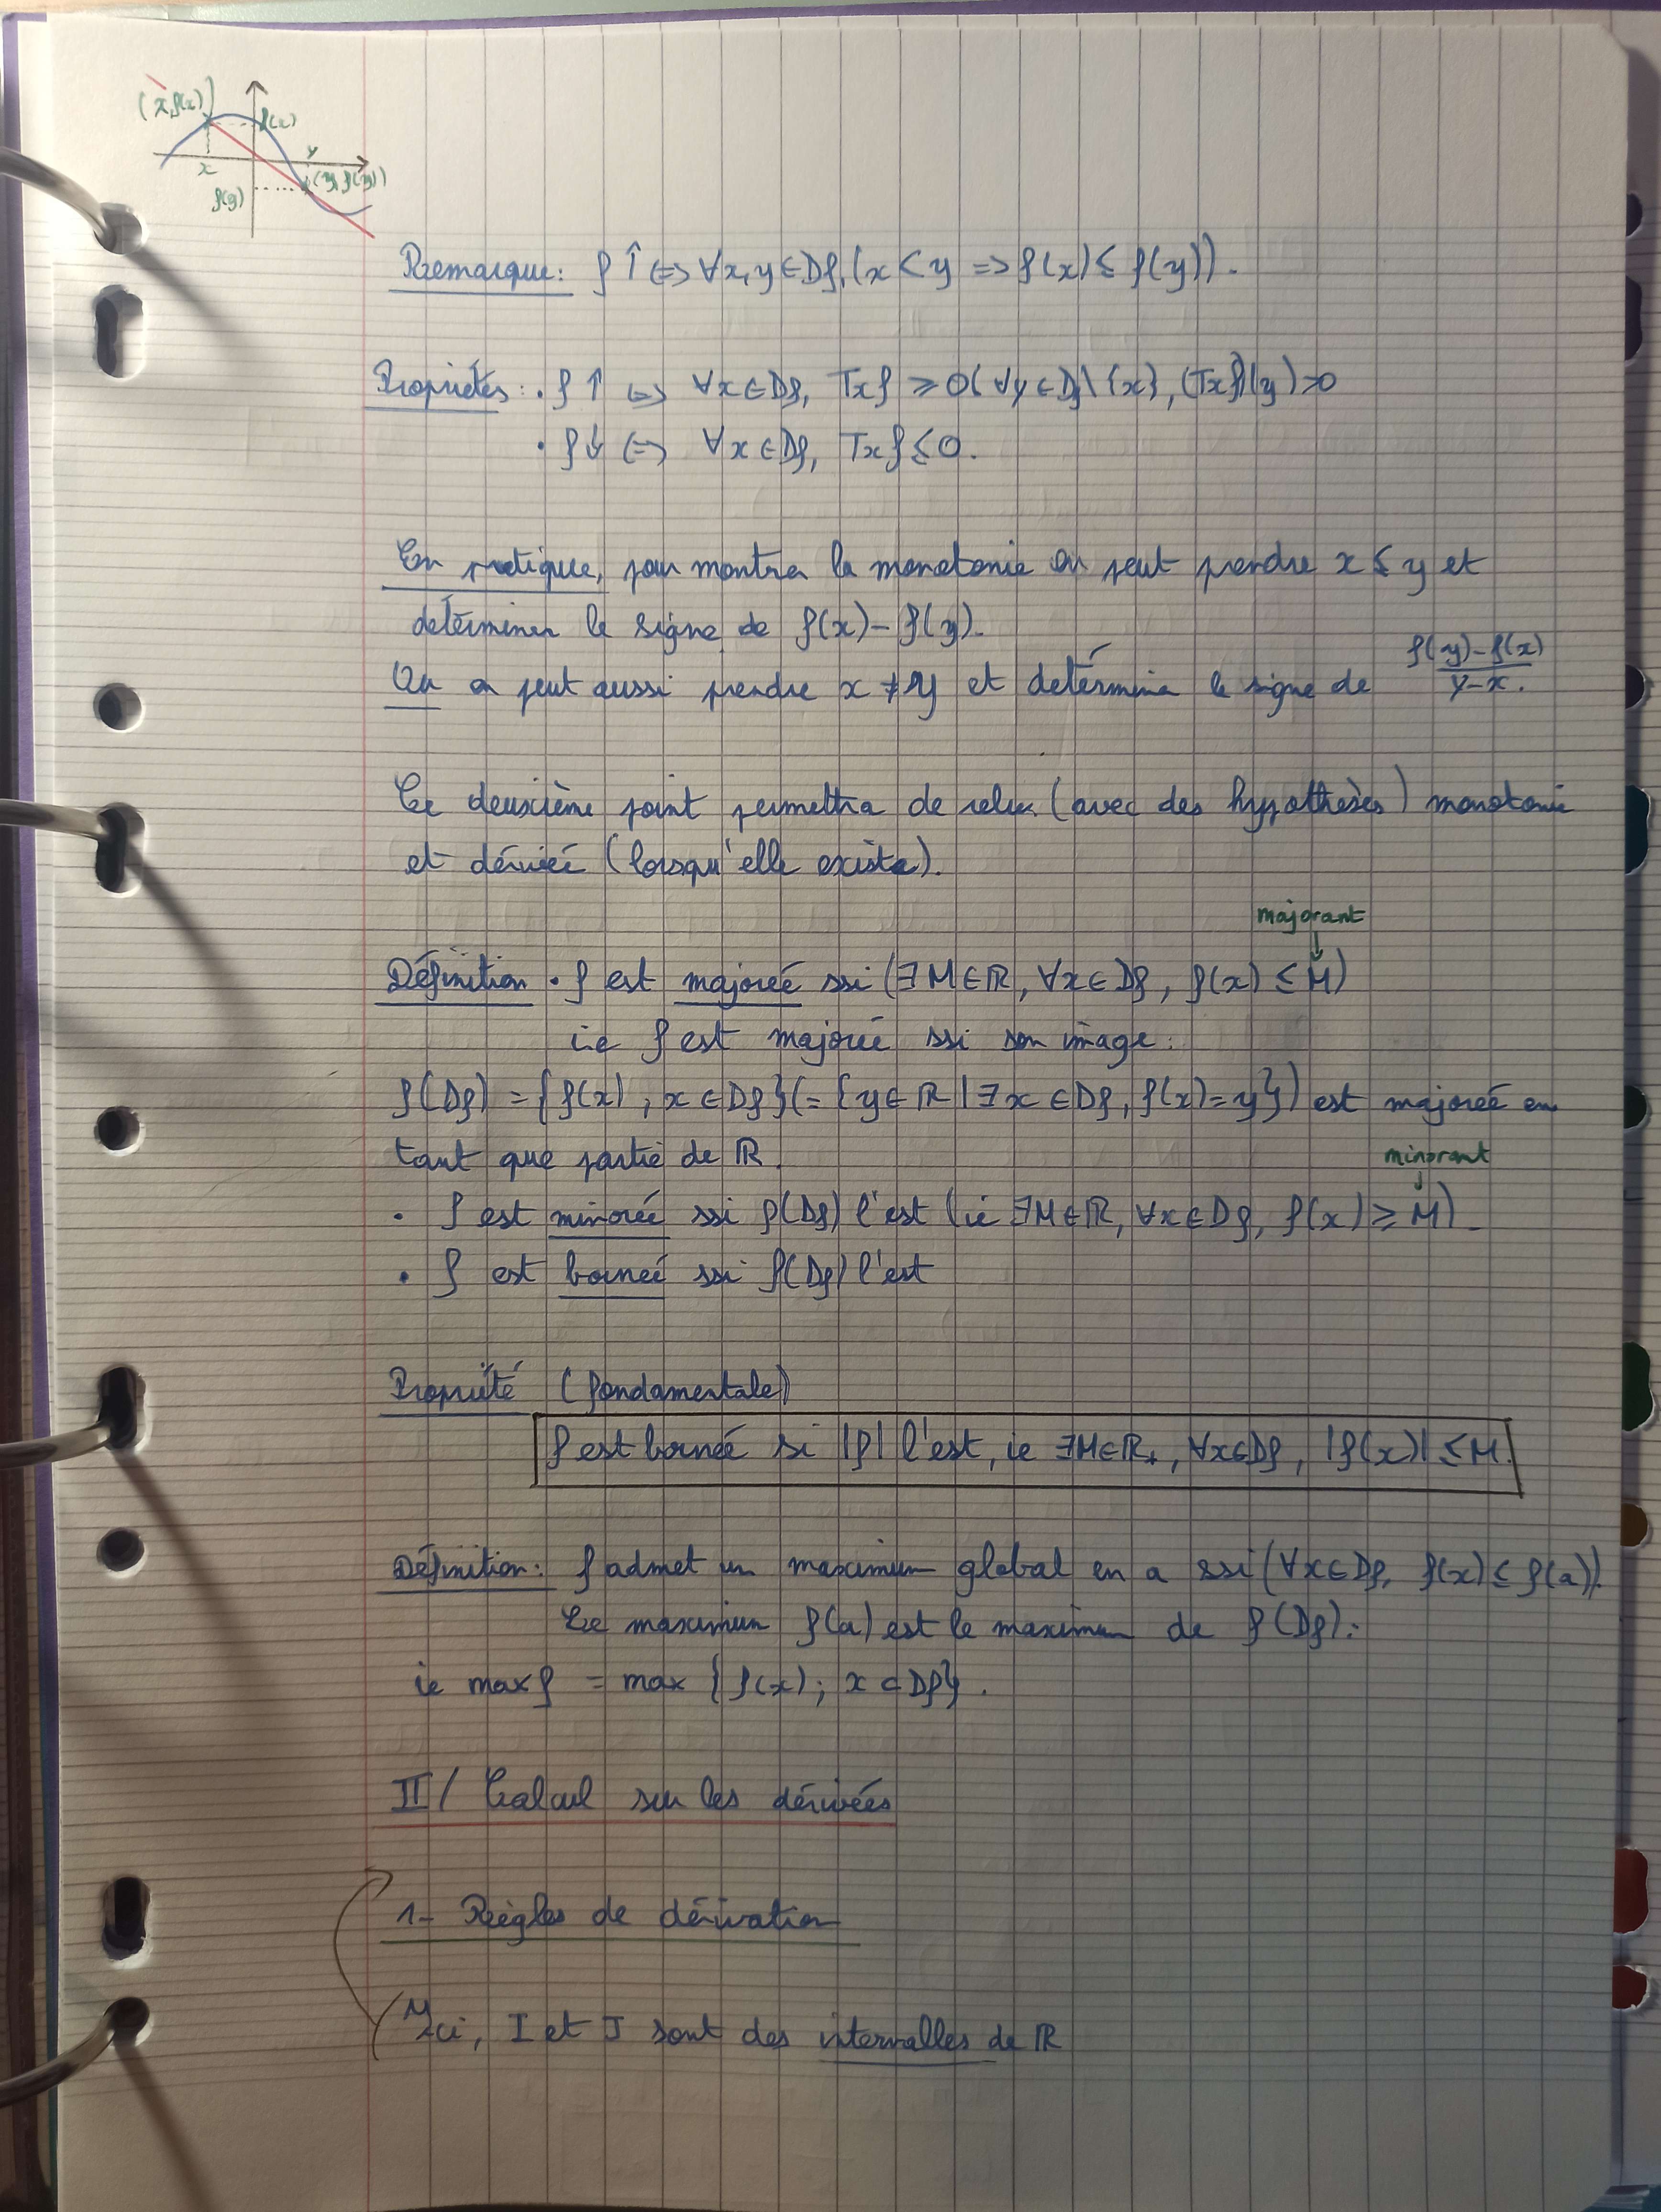 (x, f(x))
f(x)
x
y
(y, f(y))
f(y)
Remarque: f ↑ <=> ∀x,y ∈ Df, (x < y => f(x) ≤ f(y)).
Propriétés: • f ↑ <=> ∀x ∈ Df, Txf ≥ 0 (∀y ∈ Df\{x}, (Txf)(y) >0
• f ↓ <=> ∀x ∈ Df, Txf ≤ 0.
En pratique, pour montrer la monotonie on peut prendre x ≤ y et
déterminer le signe de f(x) - f(y).
Ou on peut aussi prendre x ≠ y et détermine le signe de (f(y)-f(x))/(y-x).
Ce deuxième point permettra de relier (avec des hypothèses) monotonie
et dérivée (lorsqu'elle existe).
majorant
↓
Définition • f est majorée ssi (∃ M ∈ ℝ, ∀x ∈ Df, f(x) ≤ M)
ie f est majorée ssi son image:
f(Df) = {f(x) ; x ∈ Df} (= {y ∈ ℝ | ∃ x ∈ Df, f(x) = y}) est majorée en
tant que partie de ℝ.
minorant
↓
• f est minorée ssi f(Df) l'est (ie ∃M ∈ ℝ, ∀x ∈ Df, f(x) ≥ M).
• f est bornée ssi f(Df) l'est
Propriété (fondamentale)
f est bornée si |f| l'est, ie ∃M ∈ ℝ+, ∀x ∈ Df, |f(x)| ≤ M.
Définition: f admet un maximum global en a ssi (∀x ∈ Df, f(x) ≤ f(a)).
Ce maximum f(a) est le maximum de f(Df):
ie max f = max {f(x) ; x ∈ Df}.
II/ Calcul sur les dérivées
1- Règles de dérivation
Ici, I et J sont des intervalles de ℝ